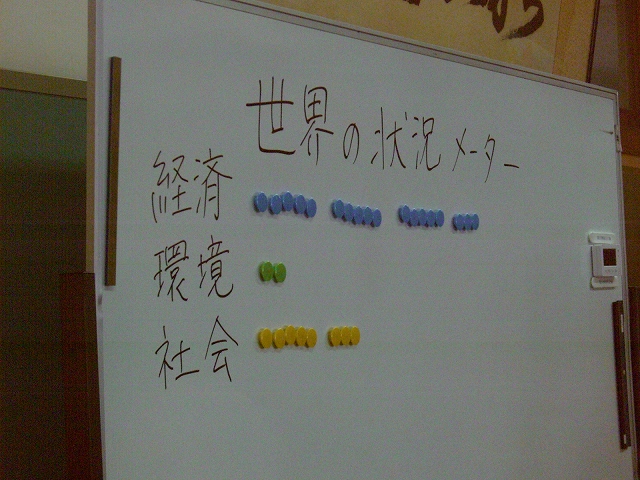 世界の状況メーター
経済
環境
社会